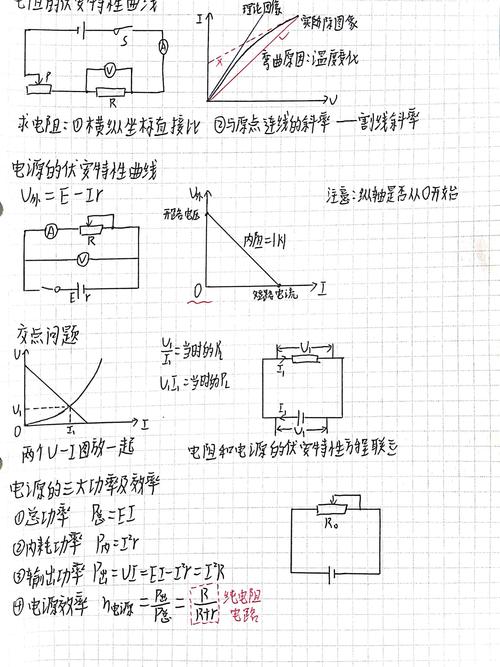 电阻的伏安特性曲线
S
A
P
V
R
I
理论图像
实际图像
弯曲原因:温度变化
V
求电阻:①横纵坐标直接比 ②与原点连线的斜率——割线斜率
电源的伏安特性曲线
U外=E-Ir
A
R
V
E r
U外
开路电压
内阻=|k|
0
短路电流
I
注意:纵轴是否从0开始
交点问题
U
U₁
0
I₁
I
两个U-I图放一起
U₁/I₁=当时的R
U₁I₁=当时的P
U₁
I₁
I₁
U₁
电阻和电源的伏安特性方程联立
电源的三大功率及效率
①总功率 P总=EI
②内耗功率 P内=I²r
③输出功率 P出=UI=EI-I²r=I²R
④电源效率 η电源=P出/P总=R/(R+r) 纯电阻
电路
R₀